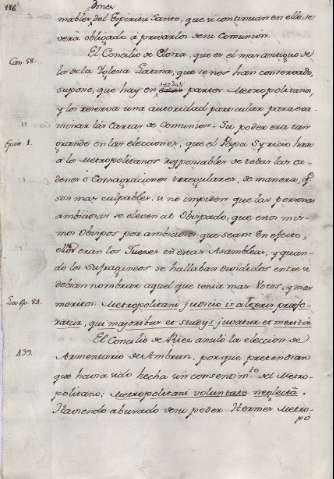 186
mables del Espiritu Santo, que si continuan en ello se
verá obligado á privarlos de su Comunion.
El Concilio de Elvira, que es el mas antiguo de
Can. 58.
los de la Iglesia Latina, que se nos han conservado,
supone, que hay en todas partes Metropolitano,
y los reserva una autoridad particular para exa-
minar las Cartas de Comunion. Su poder era tan
grande en las elecciones, que el Papa Syricio hace
Epist. 1.
á los Metropolitanos responsables de todas las or-
denes ó Consagraciones irregulares, de manera, qe
son mas culpables, si no impiden que las personas
ambiciosas se eleven al Obispado, que los mis-
mos Obispos por ambiciosos que sean. En efecto,
ellos eran los Jueces en estas Asambleas, y quan-
do los sufragios se hallaban divididos entre si
debian nombrar aquel que tenia mas Votos, y mas
meritos: Metropolitani judicio is alteri praefe-
ratur, qui majoribus et studiis juvatur et meritis.
El Concilio de Riez anuló la eleccion de
439.
Armentario de Ambrun, porque pretendian
que havia sido hecha sin consentimto del Metro-
politano; Metropolitani voluntate neglecta.
Haviendo abusado de su poder Hormes Metro-
po